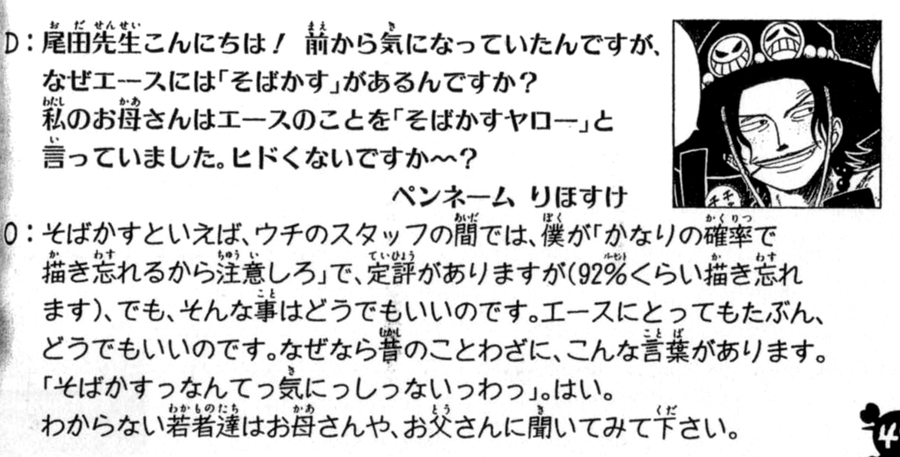 D：尾田先生こんにちは！ 前から気になっていたんですが、
なぜエースには「そばかす」があるんですか？
私のお母さんはエースのことを「そばかすヤロー」と
言っていました。ヒドくないですか〜？
ペンネーム りほすけ
O：そばかすといえば、ウチのスタッフの間では、僕が「かなりの確率で
描き忘れるから注意しろ」で、定評がありますが(92%くらい描き忘れ
ます)、でも、そんな事はどうでもいいのです。エースにとってもたぶん、
どうでもいいのです。なぜなら昔のことわざに、こんな言葉があります。
「そばかすっなんてっ気にっしっないっわっ」。はい。
わからない若者達はお母さんや、お父さんに聞いてみて下さい。
4